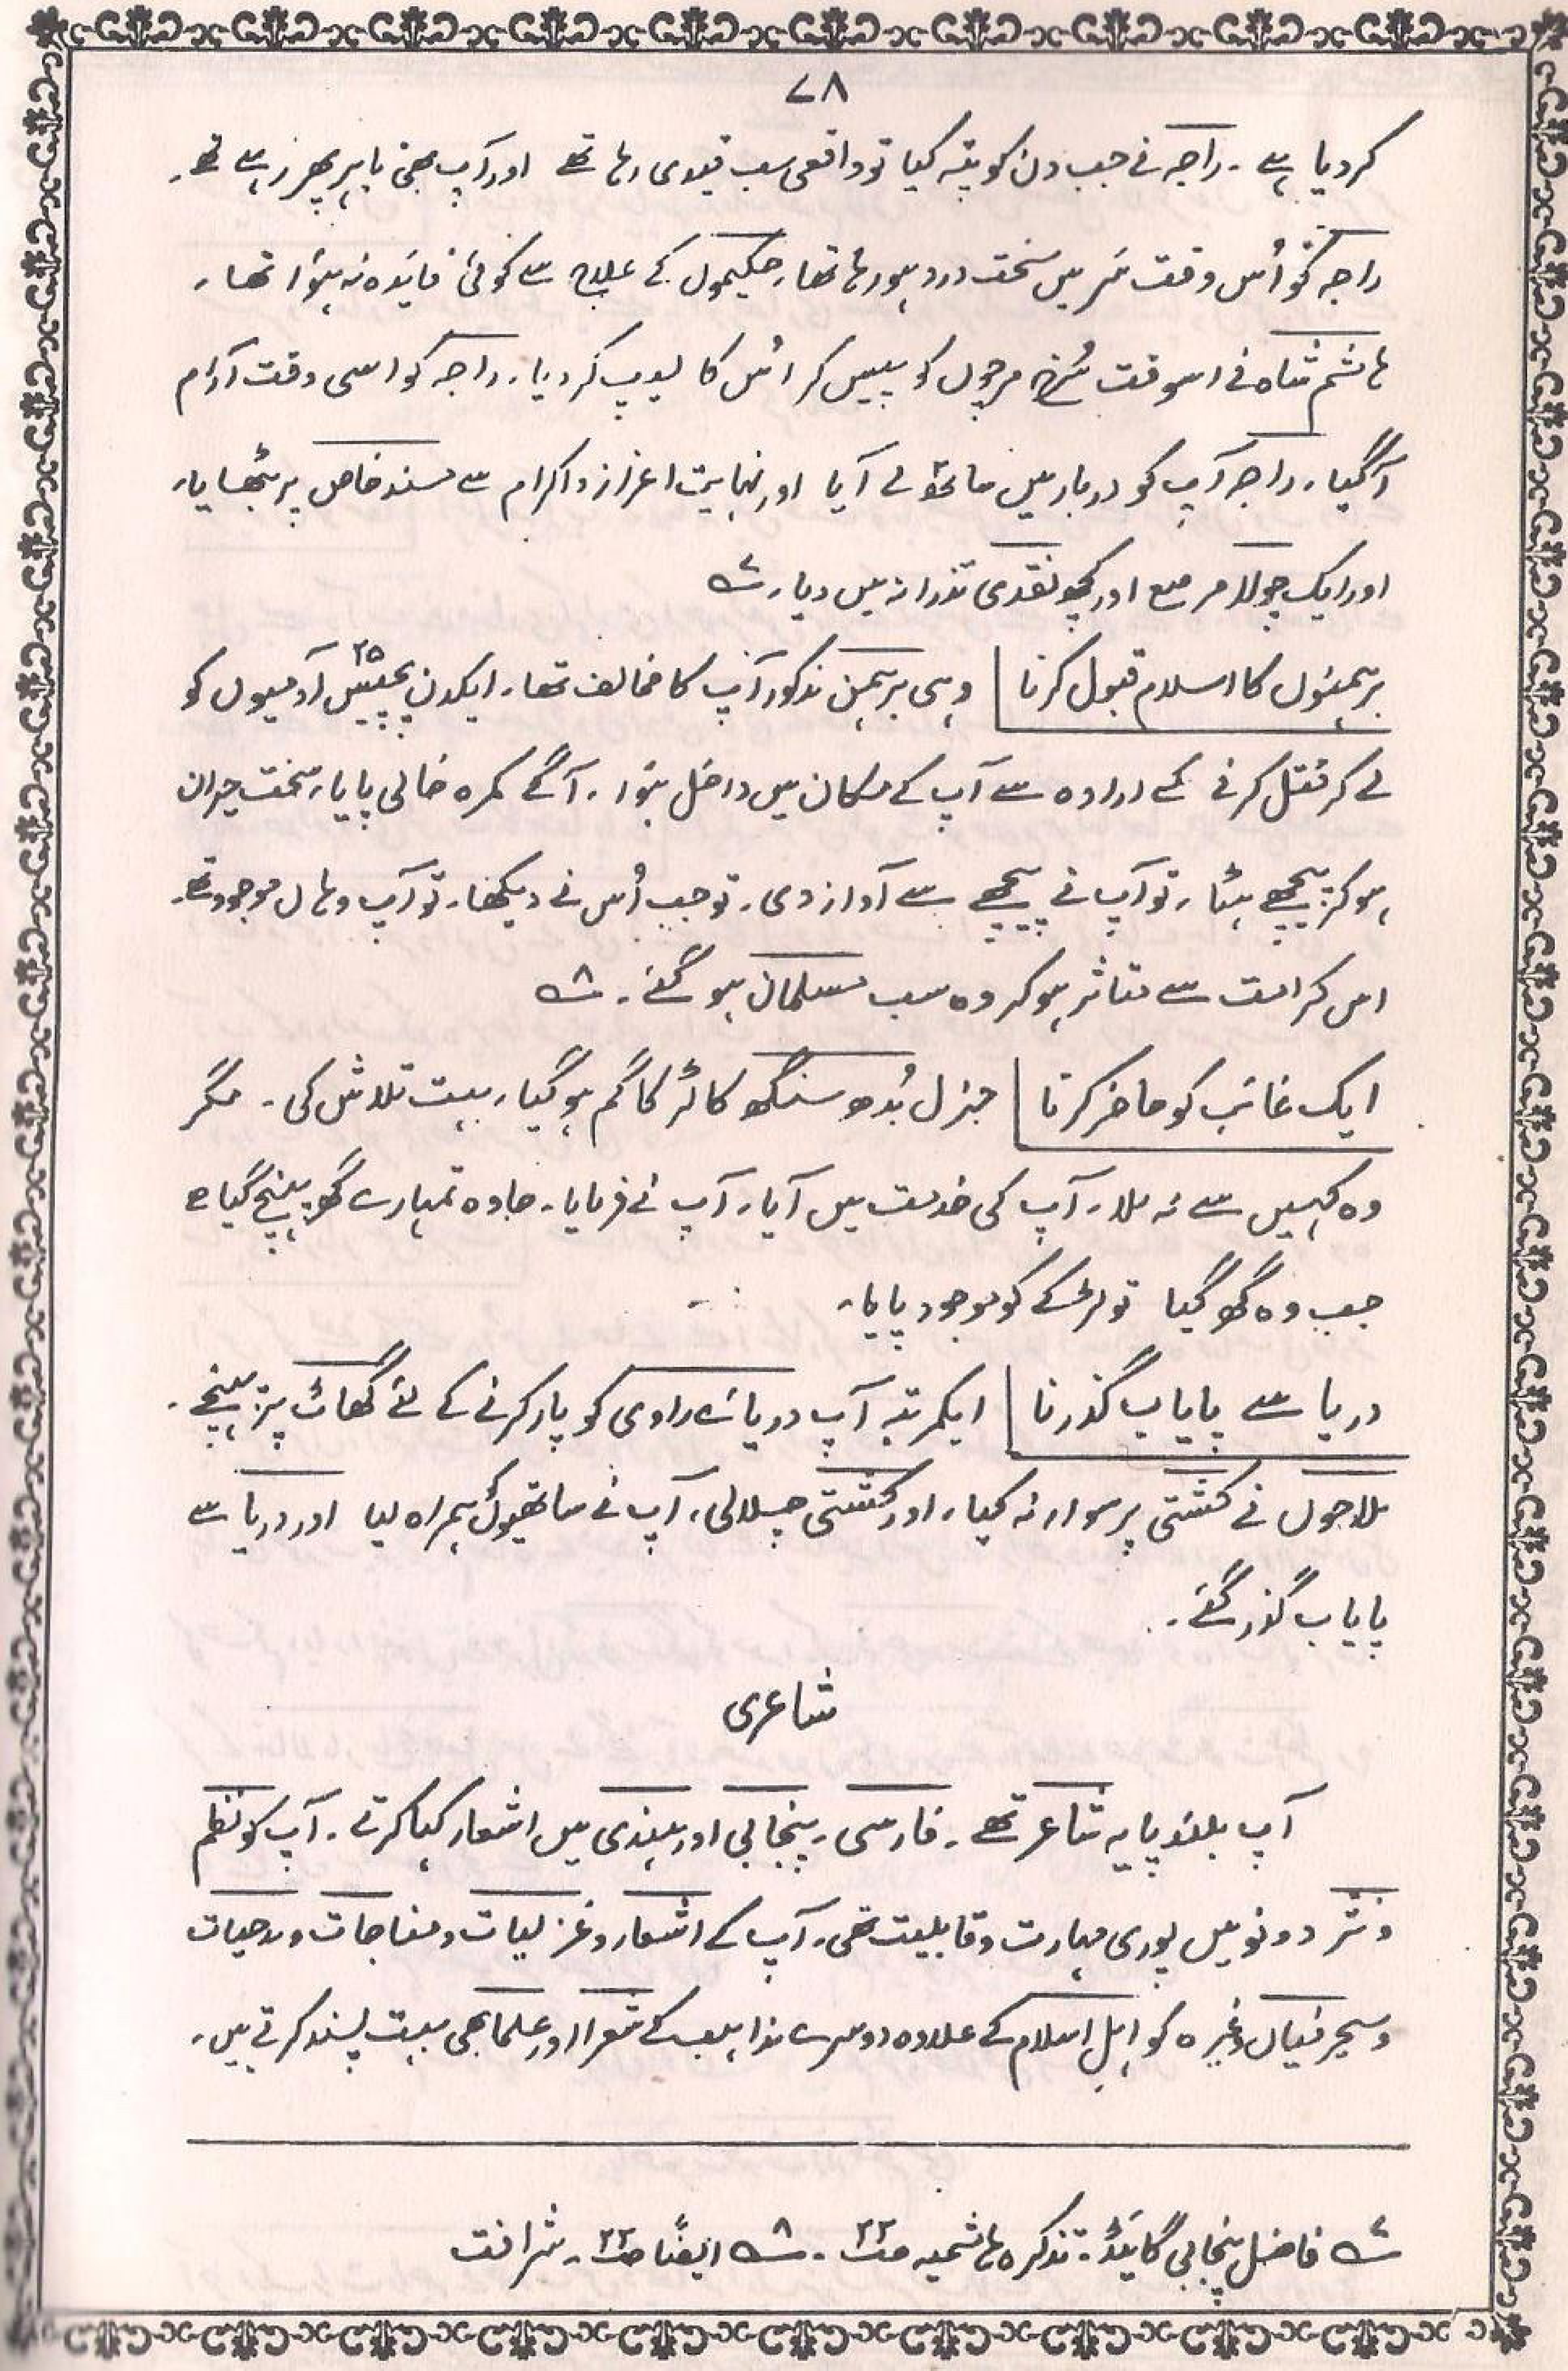 ۷۸
کردیا ہے۔ راجہ نے جب دن کو پتہ کیا تو واقعی سب قیدی رہا تھے اور آپ بھی باہر پھر رہے تھے۔
راجہ کو اُس وقت سَر میں سخت درد ہو رہا تھا، حکیموں کے علاج سے کوئی فائدہ نہ ہؤا تھا۔
ہاشم شاہ نے اسوقت سُرخ مرچوں کو پیس کر اُس کا لیپ کردیا۔ راجہ کو اسی وقت آرام
آگیا۔ راجہ آپ کو دربار میں ساتھ لے آیا اور نہایت اعزاز و اکرام سے مسند خاص پر بٹھایا۔
اور ایک چولا مرصع اور کچھ نقدی نذرانہ میں دیا۔ ۷؎
برہمنوں کا اسلام قبول کرنا وہی برہمن مذکور آپ کا مخالف تھا۔ ایکدن پچیس ۲۵ آدمیوں کو
لے کر قتل کرنے کے ارادہ سے آپ کے مکان میں داخل ہؤا۔ آگے کمرہ خالی پایا۔ سخت حیران
ہو کر پیچھے ہٹا۔ تو آپ نے پیچھے سے آواز دی۔ تو جب اُس نے دیکھا۔ تو آپ وہاں موجود تھے۔
اس کرامت سے متاثر ہو کر وہ سب مسلمان ہو گئے۔ ۸؎
ایک غائب کو حاضر کرنا جنرل بُدھ سنگھ کا لڑکا گم ہو گیا، بہت تلاش کی۔ مگر
وہ کہیں سے نہ ملا۔ آپ کی خدمت میں آیا۔ آپ نے فرمایا۔ جا وہ تمہارے گھر پہنچ گیا ہے
جب وہ گھر گیا تو لڑکے کو موجود پایا۔
دریا سے پایاب گذرنا ایکمرتبہ آپ دریائے راوی کو پار کرنے کے لئے گھاٹ پر پہنچے۔
ملاحوں نے کشتی پر سوار نہ کیا، اور کشتی چلالی۔ آپ نے ساتھیوں کو ہمراہ لیا اور دریا سے
پایاب گذر گئے۔
شاعری
آپ بلند پایہ شاعر تھے۔ فارسی۔ پنجابی اور ہندی میں اشعار کہا کرتے۔ آپ کو نظم
و نثر دونو میں پوری مہارت و قابلیت تھی۔ آپ کے اشعار و غزلیات و مناجات و مدحیات
و سیحرفیاں وغیرہ کو اہل اسلام کے علاوہ دوسرے مذاہب کے شعرا اور علما بھی بہت پسند کرتے ہیں۔
۷؎ فاضل پنجابی گائیڈ۔ تذکرہ ہاشمیہ ص ۲۲۔ ۸؎ ایضًا ص ۲۲۔ شرافت